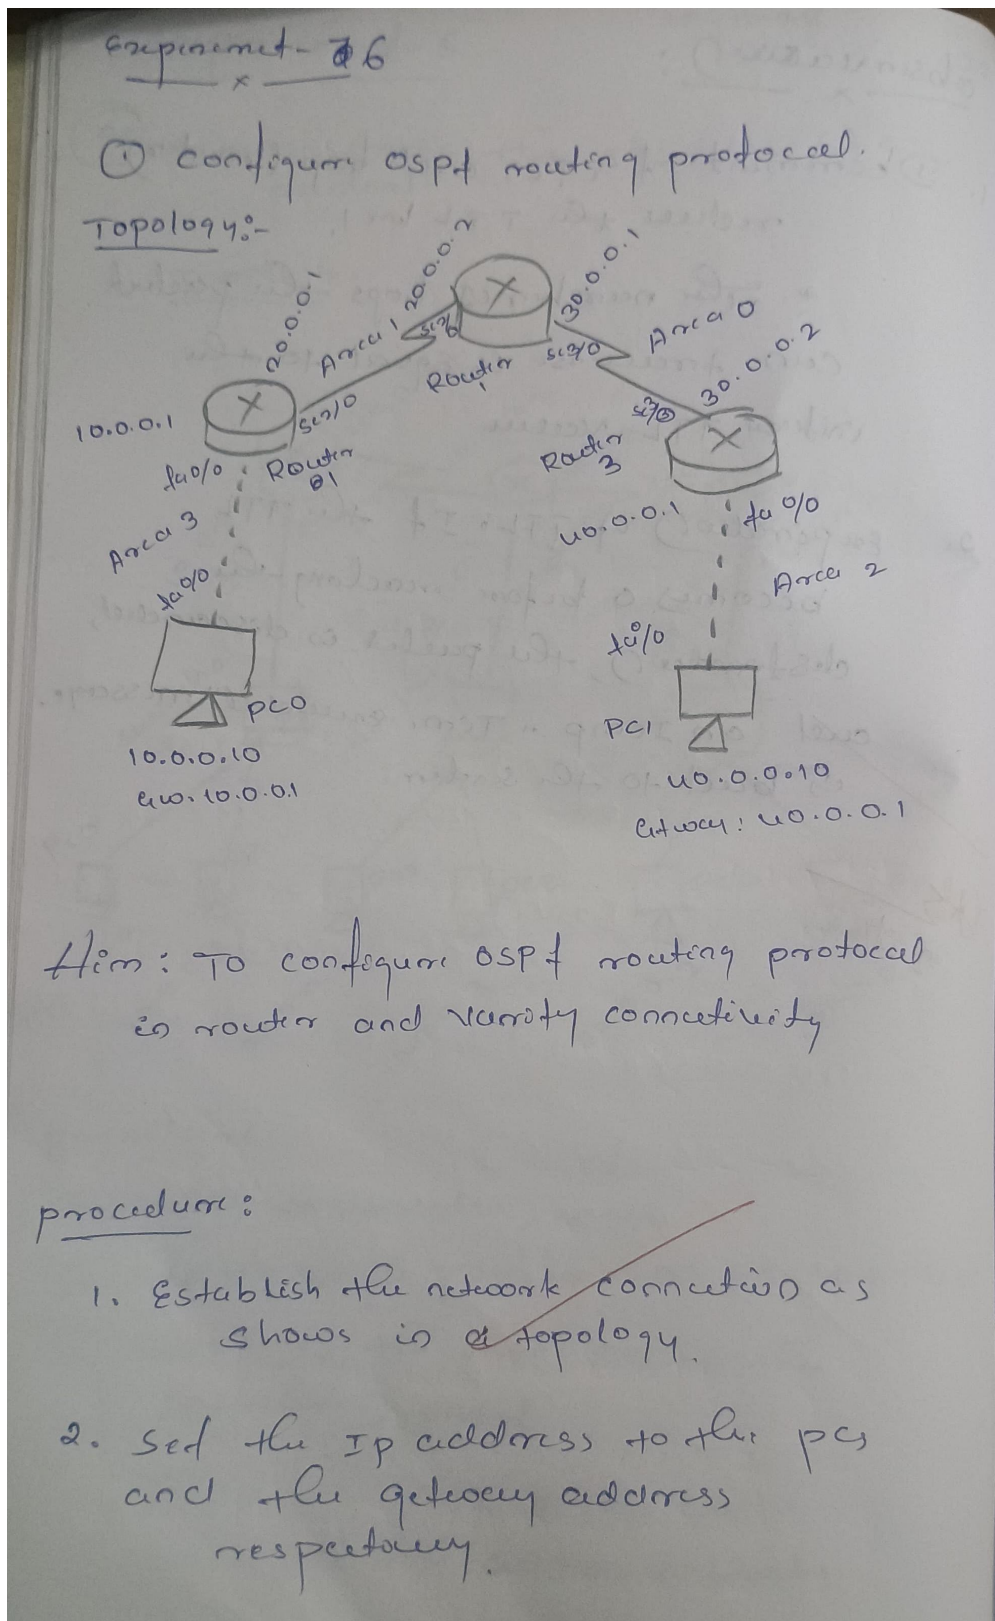 Experimet - 6
① Configure ospf routing protocal.
Topology:-
20.0.0.1
Area 1
20.0.0.2
30.0.0.1
Area 0
30.0.0.2
10.0.0.1
se2/0
Router
se3/0
fa0/0
Router
1
Router
3
40.0.0.1
fa0/0
Area 3
fa0/0
Area 2
fa0/0
PC0
PC1
10.0.0.10
40.0.0.10
Gw. 10.0.0.1
Gtway: 40.0.0.1
Aim: To configure ospf routing protocal
in router and Varify connectivity
procedure:
1. Establish the network connection as
shows in a topology.
2. Set the Ip address to the pcs
and the gateway address